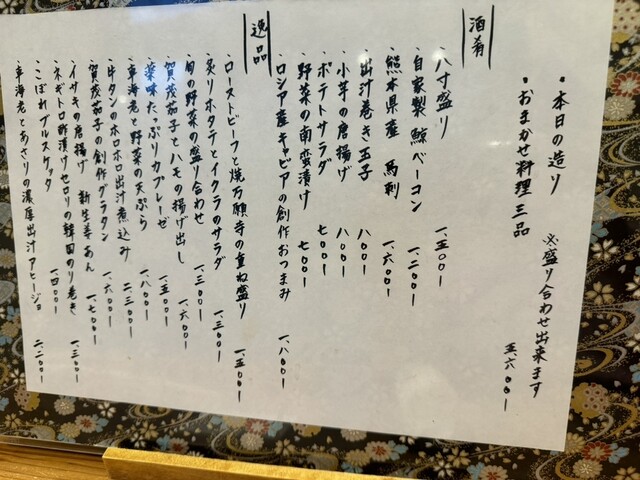 ・本日の造り ※盛り合わせ出来ます
・おまかせ料理三品 五、六〇〇ー
酒肴
・八寸盛り 一、五〇〇ー
・自家製 鯨ベーコン 一、二〇〇ー
・熊本県産 馬刺 一、六〇〇ー
・出汁巻き玉子 八〇〇ー
・小芋の唐揚げ 八〇〇ー
・ポテトサラダ 七〇〇ー
・野菜の南蛮漬け 七〇〇ー
・ロシア産キャビアの創作おつまみ 一、八〇〇ー
逸品
・ローストビーフと焼万願寺の重ね盛り 一、五〇〇ー
・炙りホタテとイクラのサラダ 一、三〇〇ー
・旬の野菜の盛り合わせ 一、三〇〇ー
・賀茂茄子とハモの揚げ出し 一、六〇〇ー
・薬味たっぷりカプレーゼ 一、五〇〇ー
・車海老と野菜の天ぷら 一、八〇〇ー
・牛タンのホロホロ出汁煮込み 二、三〇〇ー
・賀茂茄子の創作グラタン 一、七〇〇ー
・イサキの唐揚げ 新生姜あん
・ネギトロ酢漬けセロリの韓国のり巻き 一、三〇〇ー
・こぼれブルスケッタ 一、四〇〇ー
・車海老とあさりの濃厚出汁アヒージョ 二、二〇〇ー